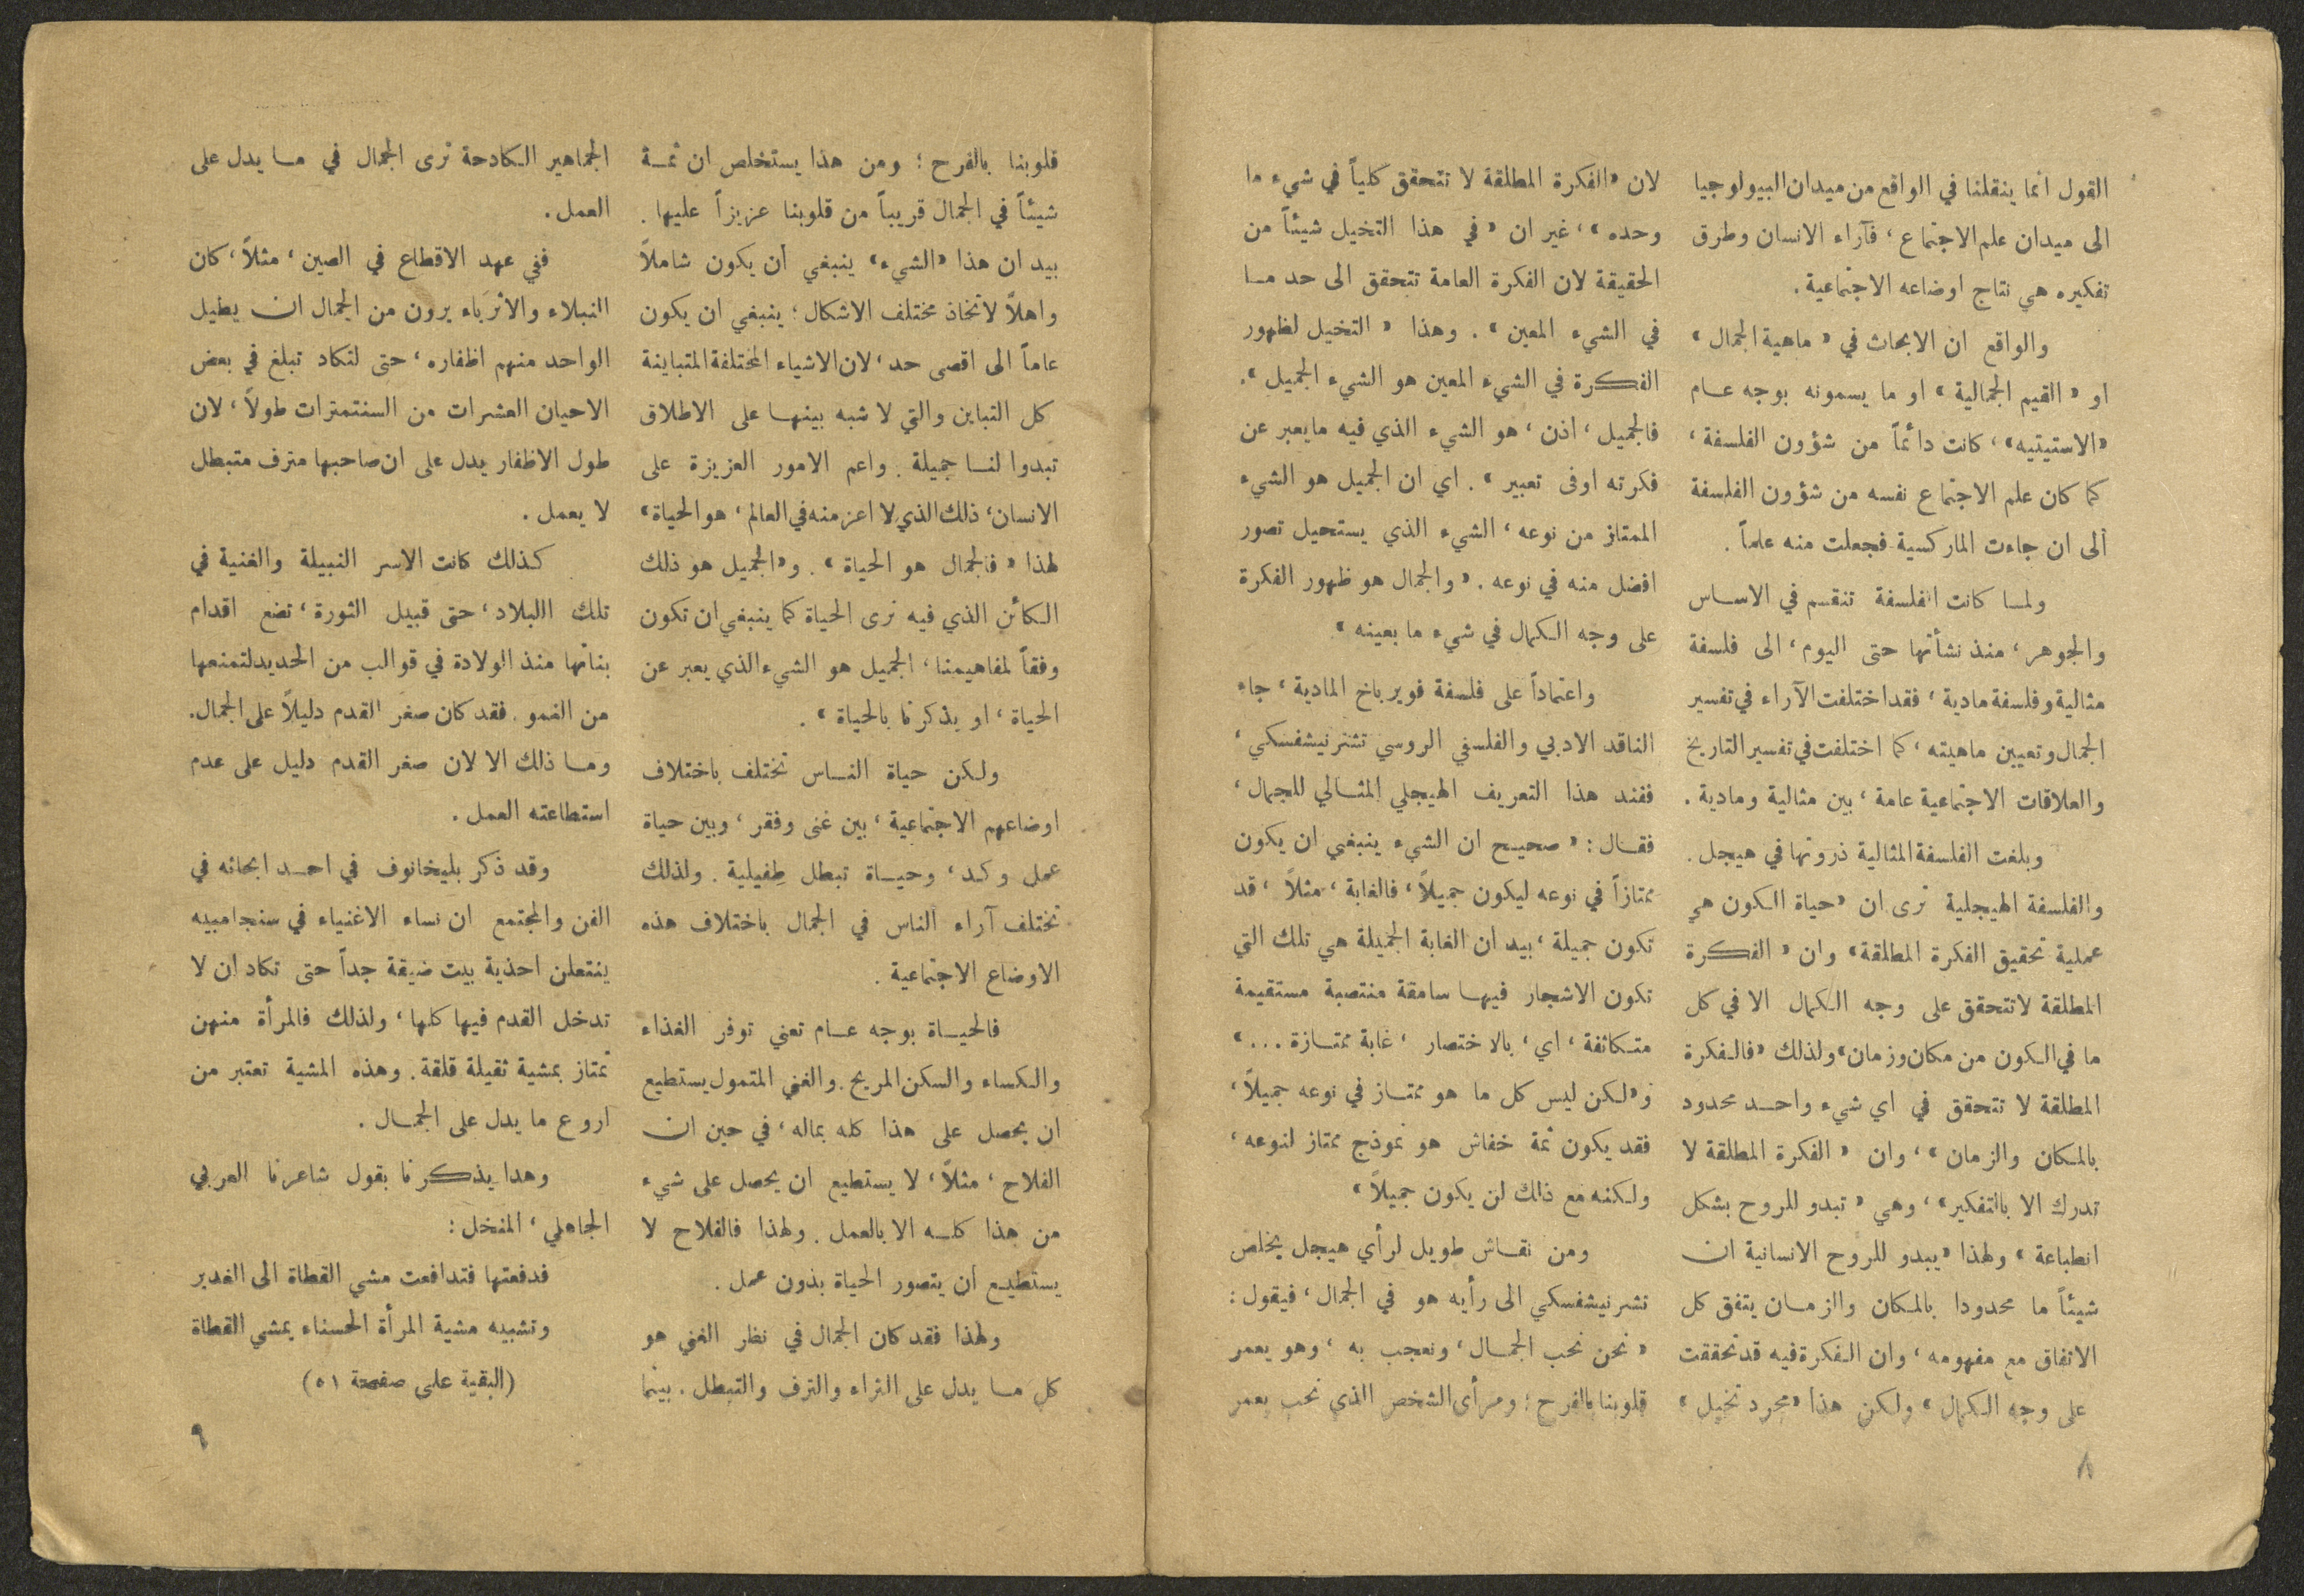 القول انما ينقلنا في الواقع من ميدان البيولوجيا
الى ميدان علم الاجتماع ، فآراء الانسان وطرق
تفكيره هي نتاج اوضاعه الاجتماعية .
والواقع ان الابحاث في « ماهية الجمال »
او « القيم الجمالية » او ما يسمونه بوجه عام
«الاستيتيه» ، كانت دائماً من شؤون الفلسفة ،
كما كان علم الاجتماع نفسه من شؤون الفلسفة
الى ان جاءت الماركسية فجعلت منه علماً .
ولما كانت الفلسفة تنقسم في الاساس
والجوهر ، منذ نشأتها حتى اليوم ، الى فلسفة
مثالية وفلسفة مادية ، فقد اختلفت الآراء في تفسير
الجمال وتعيين ماهيته ، كما اختلفت في تفسير التاريخ
والعلاقات الاجتماعية عامة ، بين مثالية ومادية .
وبلغت الفلسفة المثالية ذروتها في هيجل .
والفلسفة الهيجلية ترى ان «حياة الكون هي
عملية تحقيق الفكرة المطلقة» وان « الفكرة
المطلقة لا تتحقق على وجه الكمال الا في كل
ما في الكون من مكان وزمان» ولذلك «فالفكرة
المطلقة لا تتحقق في اي شيء واحد محدود
بالمكان والزمان » ، وان « الفكرة المطلقة لا
تدرك الا بالتفكير» ، وهي « تبدو للروح بشكل
انطباعة » ولهذا «يبدو للروح الانسانية ان
شيئاً ما محدودا بالمكان والزمان يتفق كل
الاتفاق مع مفهومه ، وان الفكرة فيه قد تحققت
على وجه الكمال» ولكن هذا «مجرد تخيل»
لان «الفكرة المطلقة لا تتحقق كلياً في شيء ما
وحده » ، غير ان « في هذا التخيل شيئاً من
الحقيقة لان الفكرة العامة تتحقق الى حد ما
في الشيء المعين » . وهذا « التخيل لظهور
الفكرة في الشيء المعين هو الشيء الجميل » .
فالجميل ، اذن ، هو الشيء الذي فيه ما يعبر عن
فكرته اوفى تعبير » . اي ان الجميل هو الشيء
الممتاز من نوعه ، الشيء الذي يستحيل تصور
افضل منه في نوعه . « والجمال هو ظهور الفكرة
على وجه الكمال في شيء ما بعينه » .
واعتماداً على فلسفة فويرباخ المادية ، جاء
الناقد الادبي والفلسفي الروسي تشرنيشفسكي ،
ففند هذا التعريف الهيجلي المثالي للجمال ،
فقال : « صحيح ان الشيء ينبغي ان يكون
ممتازاً في نوعه ليكون جميلاً ، فالغابة ، مثلاً ، قد
تكون جميلة ، بيد ان الغابة الجميلة هي تلك التي
تكون الاشجار فيها سامقة منتصبة مستقيمة
متكاثفة ، اي ، بالاختصار ، غابة ممتازة ... »
و«لكن ليس كل ما هو ممتاز في نوعه جميلاً ،
فقد يكون ثمة خفاش هو نموذج ممتاز لنوعه ،
ولكنه مع ذلك لن يكون جميلاً »
ومن نقاش طويل لرأي هيجل يخلص
تشرنيشفسكي الى رأيه هو في الجمال ، فيقول :
« نحن نحب الجمال ، ونعجب به ، وهو يعمر
قلوبنا بالفرح ؛ ومرأى الشخص الذي نحب يعمر
٨
قلوبنا بالفرح ؛ ومن هذا يستخلص ان ثمة
شيئاً في الجمال قريباً من قلوبنا عزيزاً عليها .
بيد ان هذا «الشيء» ينبغي ان يكون شاملاً
واهلاً لاتخاذ مختلف الاشكال ؛ ينبغي ان يكون
عاماً الى اقصى حد ، لان الاشياء المختلفة المتباينة
كل التباين والتي لا شبه بينها على الاطلاق
تبدوا لنا جميلة . واعم الامور العزيزة على
الانسان ، ذلك الذي لا اعز منه في العالم ، هو الحياة »
لهذا « فالجمال هو الحياة » . و«الجميل هو ذلك
الكائن الذي فيه نرى الحياة كما ينبغي ان تكون
وفقاً لمفاهيمنا ، الجميل هو الشيء الذي يعبر عن
الحياة ، او يذكرنا بالحياة » .
ولكن حياة الناس تختلف باختلاف
اوضاعهم الاجتماعية ، بين غنى وفقر ، وبين حياة
عمل وكد ، وحياة تبطل طِفيلية . ولذلك
تختلف آراء الناس في الجمال باختلاف هذه
الاوضاع الاجتماعية .
فالحياة بوجه عام تعني توفر الغذاء
والكساء والسكن المريح . والغني المتمول يستطيع
ان يحصل على هذا كله بماله ، في حين ان
الفلاح ، مثلاً ، لا يستطيع ان يحصل على شيء
من هذا كله الا بالعمل . ولهذا فالفلاح لا
يستطيع ان يتصور الحياة بدون عمل .
ولهذا فقد كان الجمال في نظر الغني هو
كل ما يدل على الثراء والترف والتبطل . بينما
الجماهير الكادحة ترى الجمال في ما يدل على
العمل .
ففي عهد الاقطاع في الصين ، مثلاً ، كان
النبلاء والأثرياء يرون من الجمال ان يطيل
الواحد منهم اظفاره ، حتى لتكاد تبلغ في بعض
الاحيان العشرات من السنتمترات طولاً ، لان
طول الاظفار يدل على ان صاحبها مترف متبطل
لا يعمل .
كذلك كانت الاسر النبيلة والغنية في
تلك االبلاد ، حتى قبيل الثورة ، تضع اقدام
بناتها منذ الولادة في قوالب من الحديد لتمنعها
من النمو . فقد كان صغر القدم دليلاً على الجمال .
وما ذلك الا لان صغر القدم دليل على عدم
استطاعته العمل .
وقد ذكر بليخانوف في احد ابحاثه في
الفن والمجتمع ان نساء الاغنياء في سنجامبيه
ينتعلن احذية بيت ضيقة جداً حتى تكاد ان لا
تدخل القدم فيها كلها ، ولذلك فالمرأة منهن
تمتاز بمشية ثقيلة قلقة . وهذه المشية تعتبر من
اروع ما يدل على الجمال .
وهدا يذكرنا بقول شاعرنا العربي
الجاهلي ، المنخل :
فدفعتها فتدافعت مشي القطاة الى الغدير
وتشبيه مشية المرأة الحسناء بمشي القطاة
(البقية على صفحة ٥١)
٩